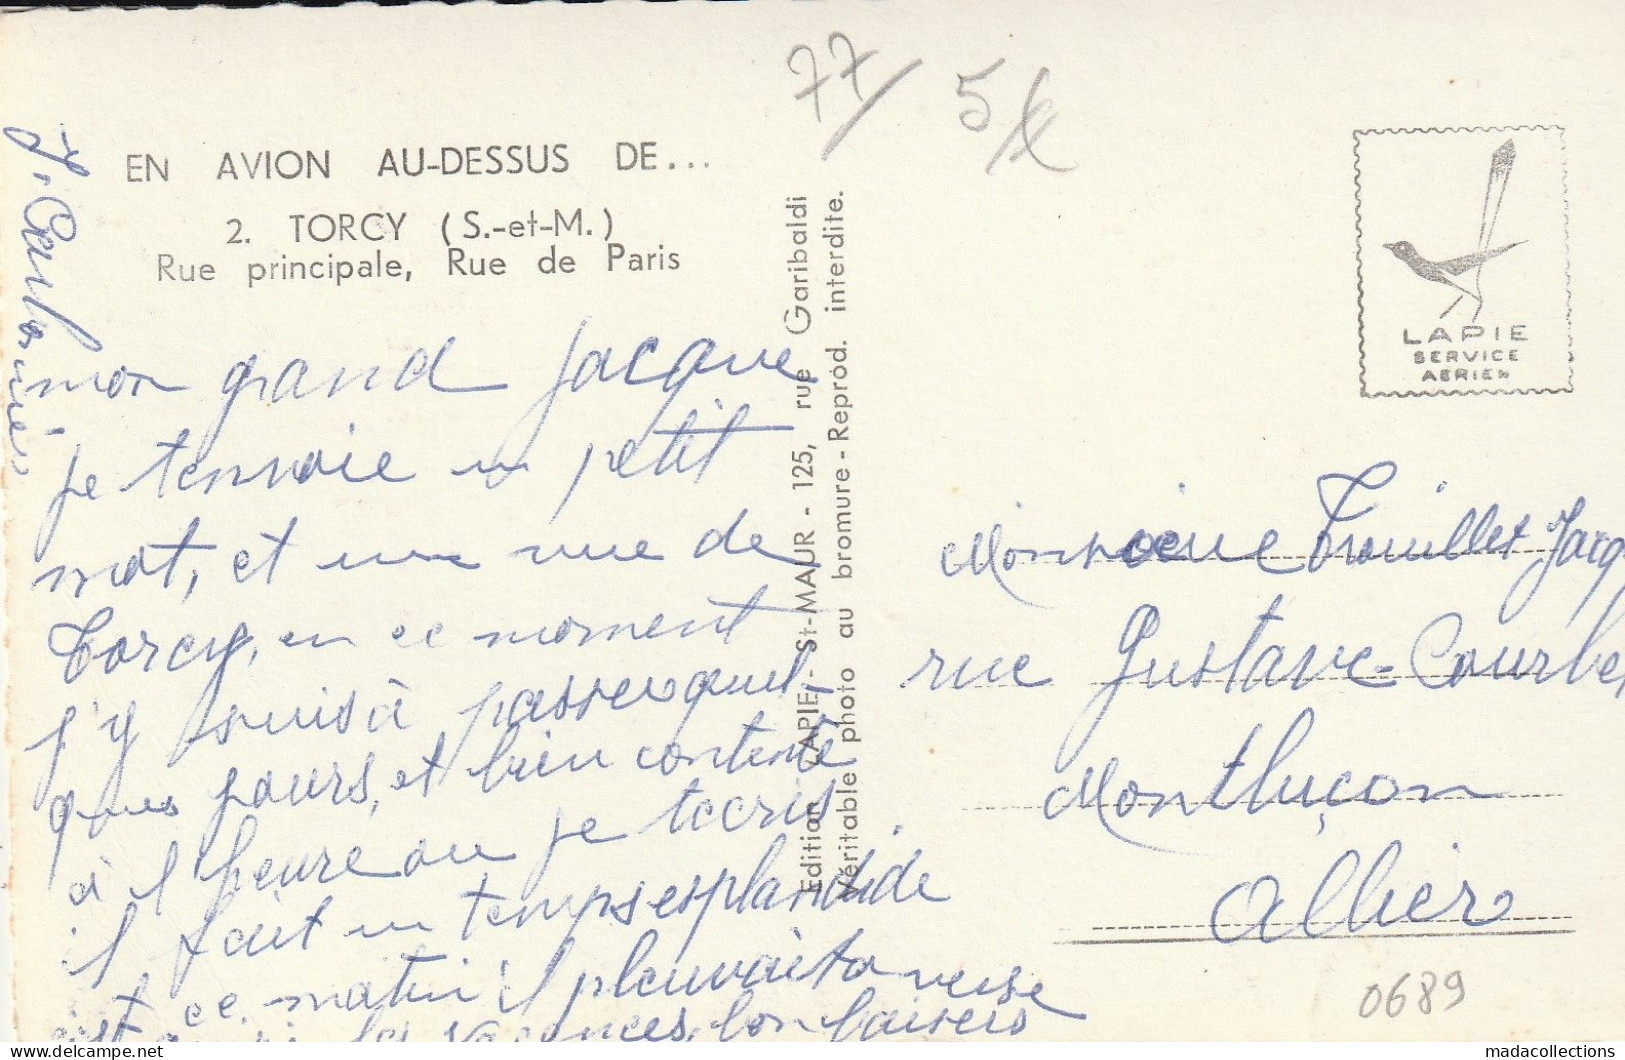 77/ 5
EN AVION AU-DESSUS DE...
2. TORCY (S.-et-M.)
Rue principale, Rue de Paris
mon grand Jacque
je tenvoie un petit
mot, et une vue de
Torcy, en ce moment
j'y suis à passer quel-
ques jours, et bien contente
à l'heure ou je tecris
il fait un temps esplandide
et ce matin il pleuvait a verse
les vacances, bon baisers
Edition LAPIE - St-MAUR - 125, rue Garibaldi
Véritable photo au bromure - Reprod. interdite.
LAPIE
SERVICE
AERIEN
Monsieur Trouillet Jacq
rue Gustave=Courbe
Montluçon
Allier
0689
delcampe.net
madacollections